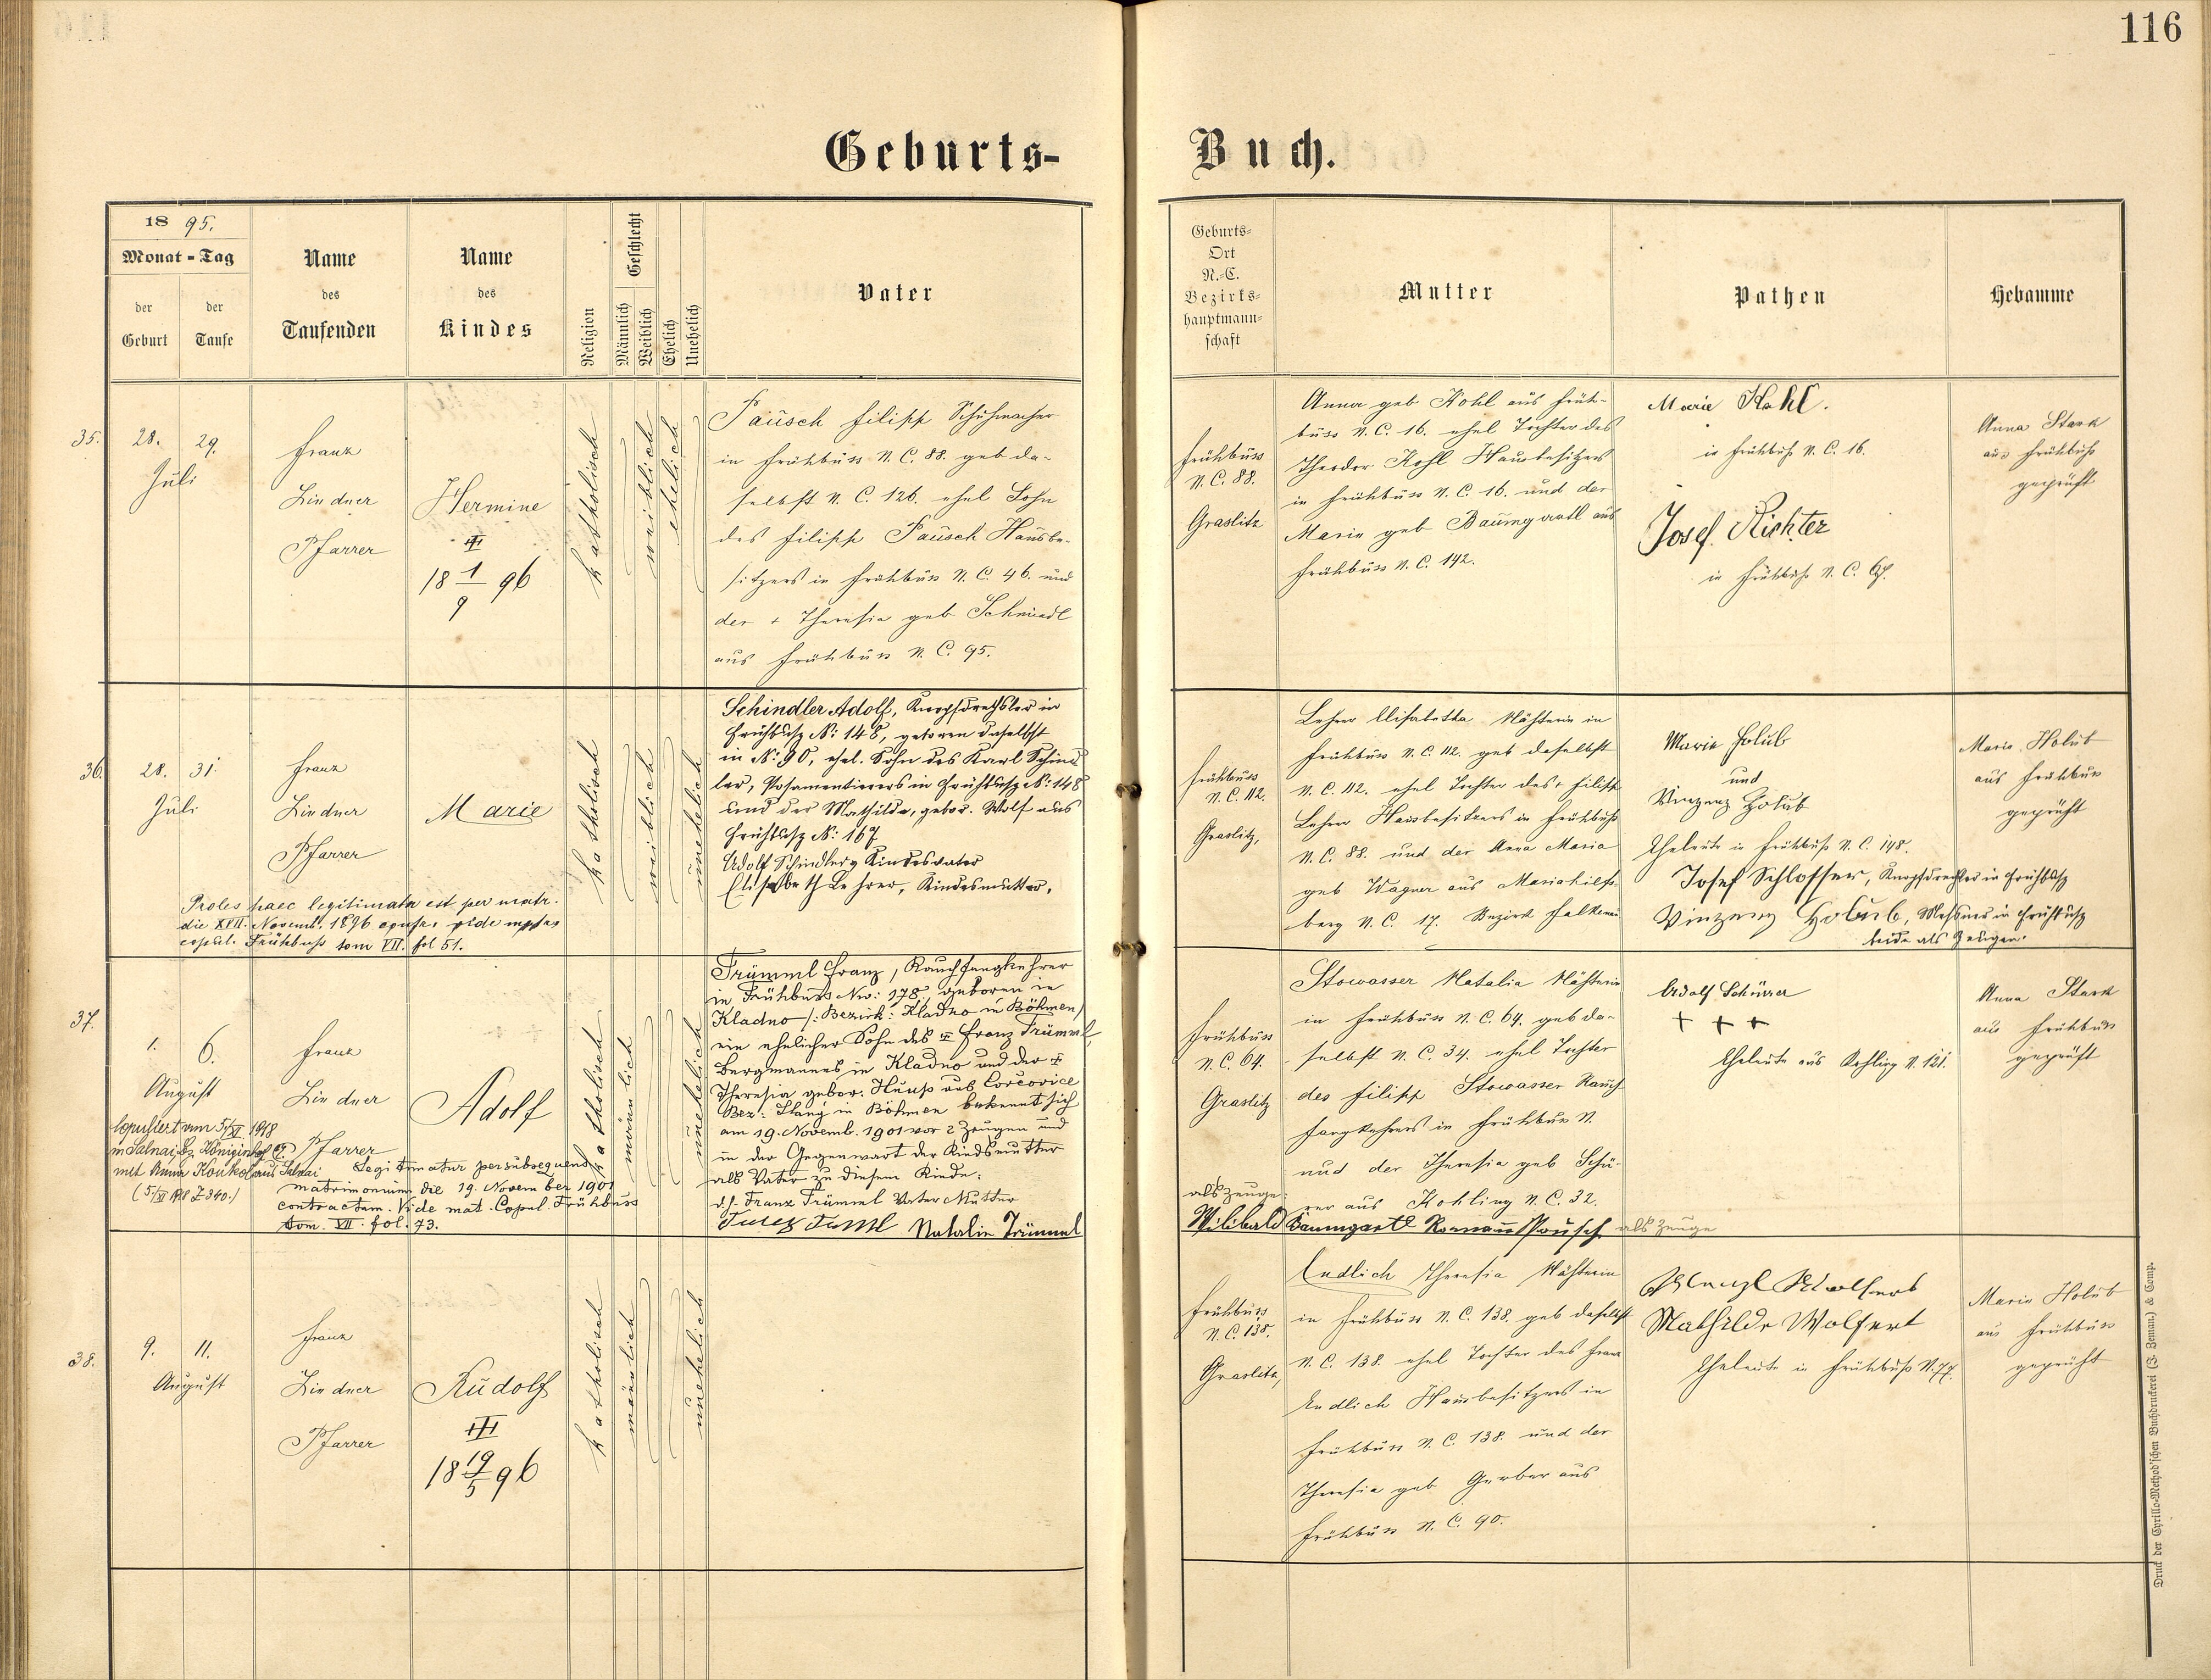 116
Geburts-
Buch.
18 95.
Monat - Tag
der
Geburt
der
Taufe
Name
des
Taufenden
Name
des
Kindes
Religion
Geschlecht
Männlich
Weiblich
Ehelich
Unehelich
Vater
Geburts-
Ort
N.-C.
Bezirks-
hauptmann-
schaft
Mutter
Pathen
Hebamme
35.
28. 29.
Juli
Franz
Lindner
Pfarrer
Hermine
III
18 1/9 96
katholisch
weiblich
ehelich
Pausch Filipp Schuhmacher
in Frühbuss N. C. 88. geb da-
selbst N. C. 126. ehel Sohn
des Filipp Pausch Hausbe-
sitzers in Frühbuss N. C. 46. und
der + Theresia geb Schmiedl
aus Frühbuss N. C. 95.
Frühbuss
N. C. 88.
Graslitz
Anna geb Kohl aus Früh-
buss N. C. 16. ehel Tochter des
Theodor Kohl Hausbesitzers
in Frühbuss N. C. 16. und der
Marie geb Baumgartl aus
Frühbuss N. C. 142.
Marie Kohl.
in Frühbuss N. C. 16.
Josef Richter
in Frühbuss N. C. 67.
Anna Stark
aus Frühbuss
geprüft
36.
28. 31.
Juli
Franz
Lindner
Pfarrer
Marie
katholisch
weiblich
unehelich
Proles haec legitimata est per matr.
die XVII. Novemb. 1896 vide
copul. Frühbuss tom VII. fol 51.
Schindler Adolf, Knopfdrechsler in
Frühbuss N: 148, geboren daselbst
in N: 90, ehel. Sohn des Karl Schind
ler, Posamentierers in Frühbuss N: 148
und der Mathilda, gebor. Wolf aus
Frühbuss N: 167
Adolf Schindler, Kindesvater
Elisabeth Lehrer, Kindesmutter.
Frühbuss
N. C. 112.
Graslitz,
Lehrer Elisabetha Nähterin in
Frühbuss N. C. 112. geb daselbst
N. C. 112. ehel Tochter des + Filipp
Lehrer Hausbesitzers in Frühbuss
N. C. 88. und der Anna Maria
geb Wagner aus Mariahilfs-
berg N. C. 17. Bezirk Falkenau
Marie Holub
und
Vinzenz Holub
Eheleute in Frühbuss N. C. 148.
Josef Schlosser, Knopfdrechsler in Frühbuss
Vinzenz Holub, Messner in Frühbuss
beide als Zeugen.
Marie Holub
aus Frühbuss
geprüft
37.
1. 6.
August
Franz
Lindner
Pfarrer
Adolf
katholisch
männlich
unehelich
Copuliert am 5/XI 1918
in Salnai Bz. Königinhof
mit Anna Koukol aus Salnai
(5/XI 1918 Z 340.)
Legitimatur per subsequens
matrimonium die 19 November 1901
contractum. Vide mat. Copul. Frühbuss
tom. VII. fol. 73.
Trümml Franz, Rauchfangkehrer
in Frühbuss Nr: 178. geboren in
Kladno /: Bezirk: Kladno in Böhmen/
ein ehelicher Sohn des + Franz Trümml,
Bergmannes in Kladno und der +
Theresia gebor. aus
Bez: Slaný in Böhmen bekennt sich
am 19. Novemb. 1901 vor 2 Zeugen und
in der Gegenwart der Kindsmutter
als Vater zu diesem Kinde.
d.h. Franz Trümml Vater Mutter
Natalie Trümml
Frühbuss
N. C. 64.
Graslitz
Stowasser Natalia Nähterin
in Frühbuss N. C. 64. geb da-
selbst N. C. 34. ehel Tochter
des Filipp Stowasser Rauch
fangkehrers in Frühbuss N.
und der Theresia geb Schü-
rer aus Kohling N. C. 32.
als Zeuge
Wilibald Baumgartl Romann Pausch als Zeuge
Adolf Schürrer
+ + +
Eheleute aus Kohling N. 121.
Anna Stark
aus Frühbuss
geprüft
38.
9. 11.
August
Franz
Lindner
Pfarrer
Rudolf
III
18 19/5 96
katholisch
männlich
unehelich
Frühbuss
N. C. 138.
Graslitz,
Endlich Theresia Nähterin
in Frühbuss N. C. 138. geb daselbst
N. C. 138. ehel Tochter des Franz
Endlich Hausbesitzers in
Frühbuss N. C. 138. und der
Theresia geb Gerber aus
Frühbuss N. C. 90.
Wenzl Wolfert
Mathilde Wolfert
Eheleute in Frühbuss N. 77.
Marie Holub
aus Frühbuss
geprüft
Druck der Cyrillo-Method'schen Buchdruckerei (J. Zeman) & Comp.